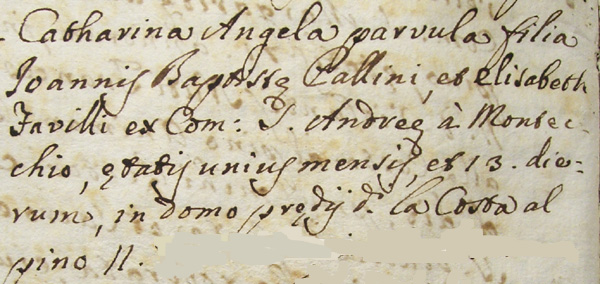 Catharina Angela parvula filia
Joannis Baptistę Pallini, et Elisabeth
Favilli ex Com: S. Andreę à Montec-
chio, ętatis unius mensis, et 13. die-
rum, in domo prędij d.ᵒ la Costa al
pino II.